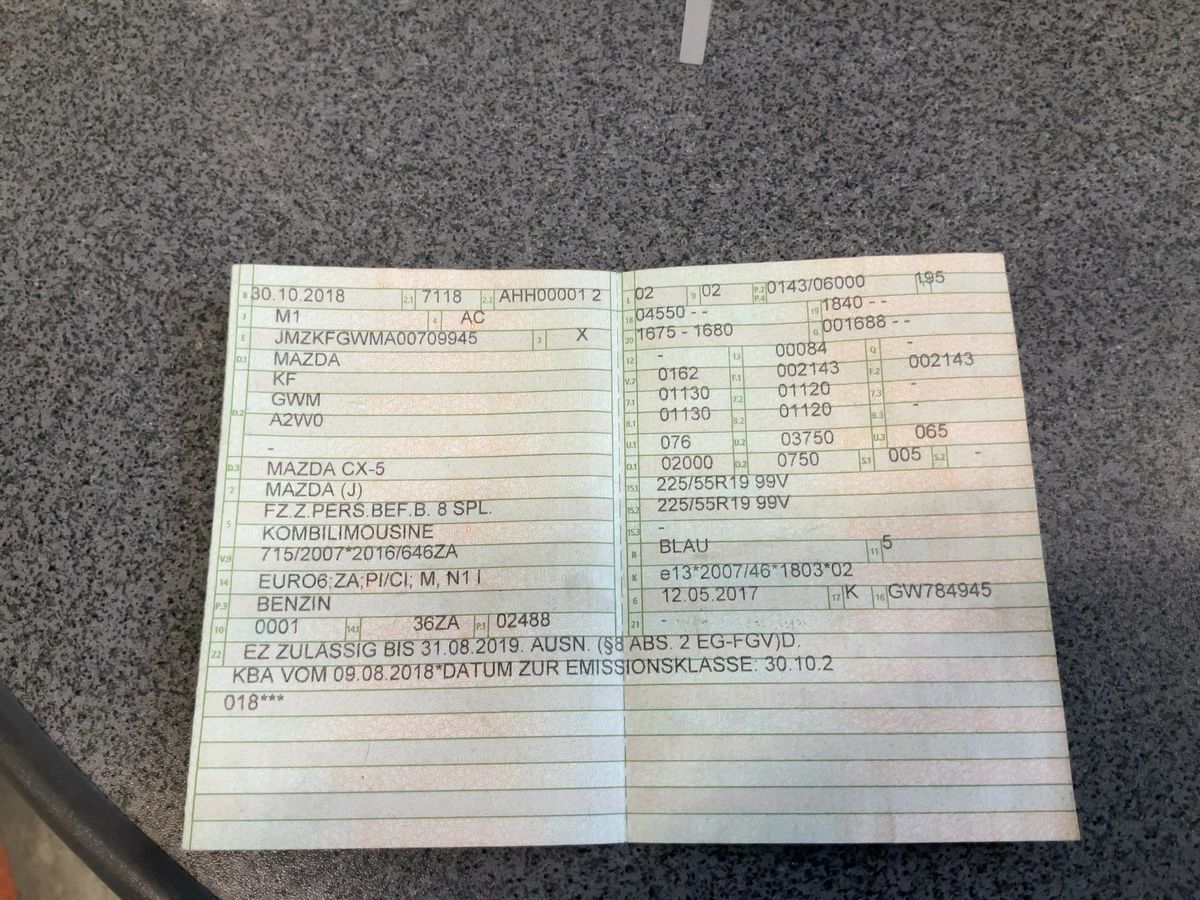 B 30.10.2018 2.1 7118 2.2 AHH00001 2
J M1 4 AC
E JMZKFGWMA00709945 3 X
D.1 MAZDA
D.2 KF
GWM
A2W0
-
D.3 MAZDA CX-5
2 MAZDA (J)
5 FZ.Z.PERS.BEF.B. 8 SPL.
KOMBILIMOUSINE
V.9 715/2007*2016/646ZA
14 EURO6;ZA;PI/CI; M, N1 I
P.3 BENZIN
10 0001 14.1 36ZA P.1 02488
L 02 9 02 P.2 P.4 0143/06000 T 195
18 04550 - - 19 1840 - -
20 1675 - 1680 G 001688 - -
12 - 13 00084 Q -
V.7 0162 F.1 002143 F.2 002143
7.1 01130 7.2 01120 7.3 -
8.1 01130 8.2 01120 8.3 -
U.1 076 U.2 03750 U.3 065
O.1 02000 O.2 0750 S.1 005 S.2 -
15.1 225/55R19 99V
15.2 225/55R19 99V
15.3 -
R BLAU 11 5
K e13*2007/46*1803*02
6 12.05.2017 17 K 16 GW784945
21 -
22 EZ ZULÄSSIG BIS 31.08.2019. AUSN. (§8 ABS. 2 EG-FGV)D.
KBA VOM 09.08.2018*DATUM ZUR EMISSIONSKLASSE: 30.10.2
018***